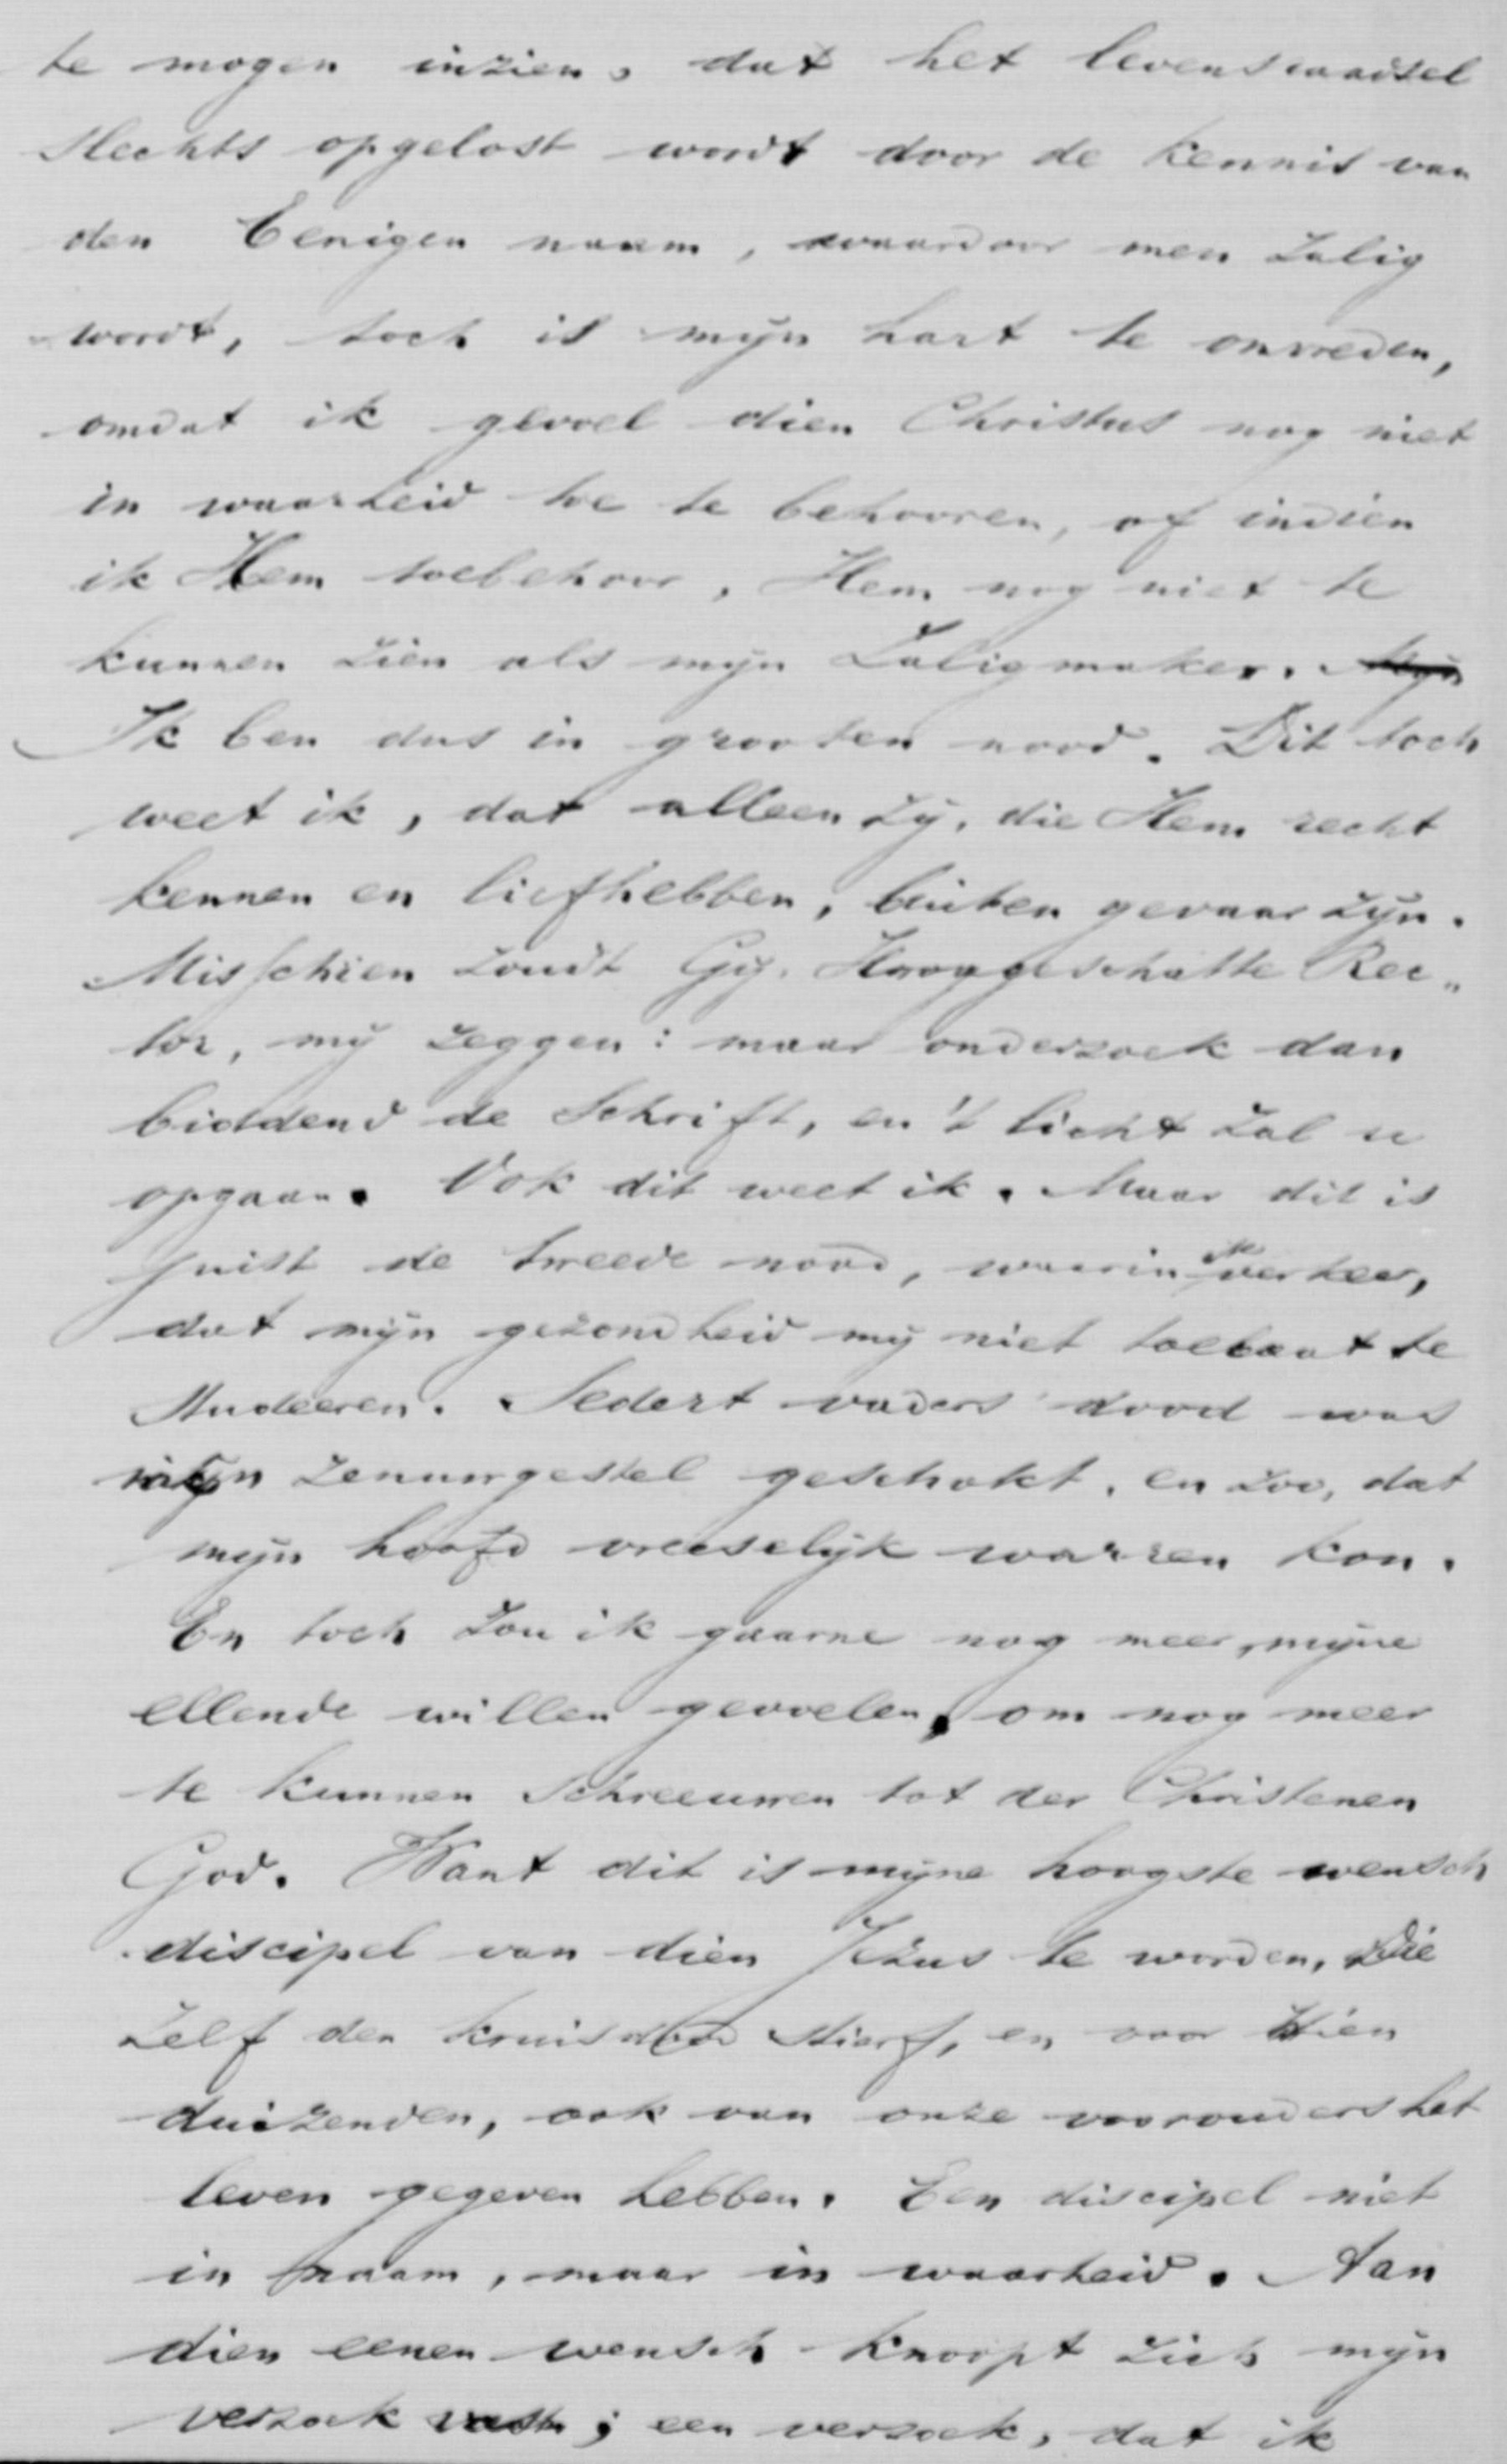 te mogen inzien, dat het levensraadsel
slechts opgelost wordt door de kennis van
den Eenigen naam, waardoor men zalig
wordt, toch is mijn hart te onvreden,
omdat ik gevoel dien Christus nog niet
in waarheid toe te behooren, of indien
ik Hem toebehoor, Hem nog niet te
kunnen zien als mijn Zaligmaker. Mijn
Ik ben dus in grooten nood. Dit toch
weet ik, dat alleen zij, die Hem recht
kennen en liefhebben, buiten gevaar zijn.
Misschien zoudt Gij, Hooggeschatte Rec„
tor, mij zeggen: maar onderzoek dan
biddend de Schrift, en 't licht zal u
opgaan. Ook dit weet ik. Maar dit is
juist de tweede nood, waarin ik verkeer,
dat mijn gezondheid mij niet toelaat te
studeeren. Sedert vaders dood was
mijn zenuwgestel geschokt, en zoo, dat
mijn hoofd vreeselijk warren kon.
En toch zou ik gaarne nog meer, mijne
ellende willen gevoelen, om nog meer
te kunnen schreeuwen tot der Christenen
God. Want dit is mijne hoogste wensch
discipel van dien Jezus te worden, Die
zelf den kruisdood stierf, en voor Wien
duizenden, ook van onze voorouders het
leven gegeven hebben. Een discipel niet
in naam, maar in waarheid. Aan
dien eenen wensch knoopt zich mijn
verzoek vast; een verzoek, dat ik